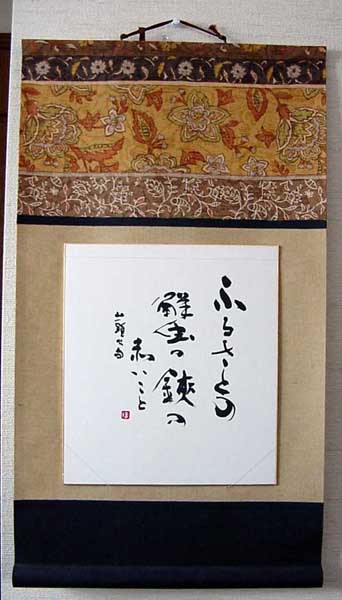 ふるさとの
蟹の鋏の
赤いこと
山頭火句